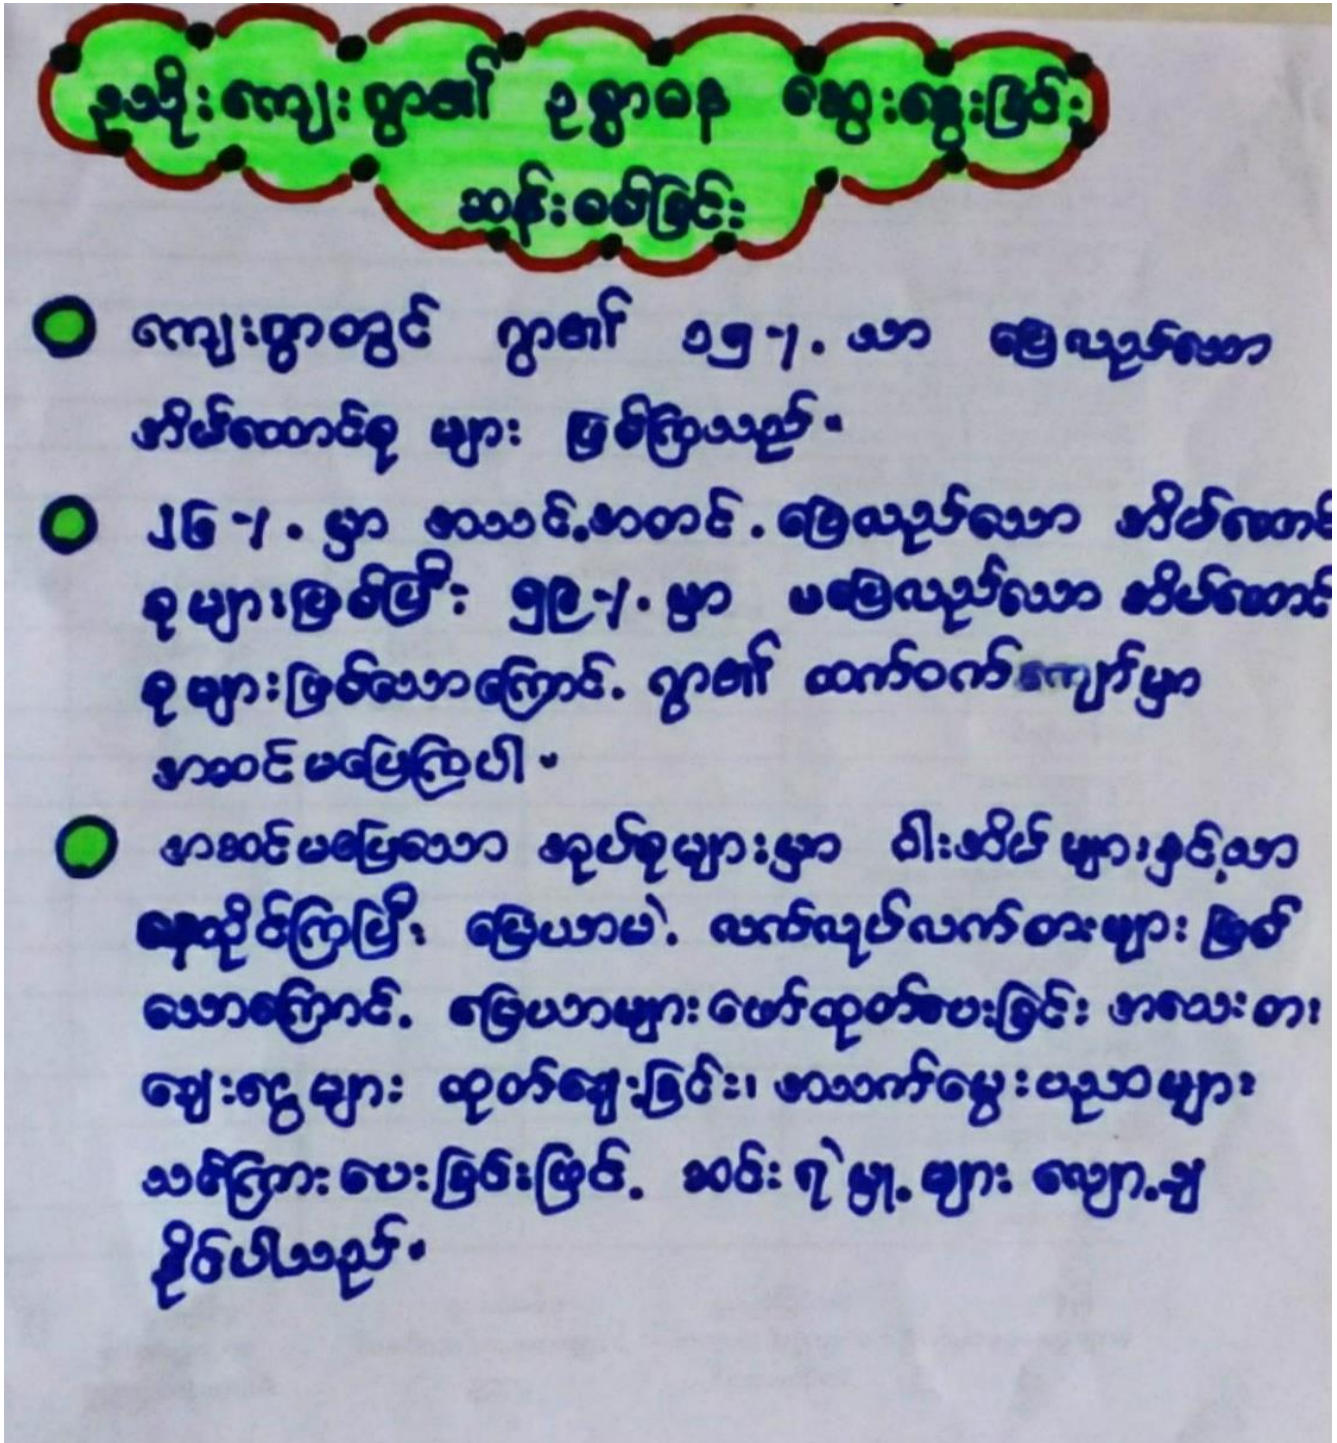 ဥသိုးကျေးရွာ၏ ဥစ္စာဓန ဆွေးနွေးခြင်း
ဆန်းစစ်ခြင်း
ကျေးရွာတွင် ရွာ၏ ၁၅ ⁒. သာ ပြေလည်သော
အိမ်ထောင်စု များ ဖြစ်ကြသည်။
၂၆ ⁒. မှာ အသင့်အတင့် ပြေလည်သော အိမ်ထောင်
စုများဖြစ်ပြီး ၅၉ ⁒. မှာ မပြေလည်သော အိမ်ထောင်
စုများဖြစ်သောကြောင့် ရွာ၏ ထက်ဝက်ကျော်မှာ
အဆင်မပြေကြပါ။
အဆင်မပြေသော အုပ်စုများမှာ ဝါးအိမ် များနှင့်သာ
နေထိုင်ကြပြီး မြေယာမဲ့ လက်လုပ်လက်စားများ ဖြစ်
သောကြောင့် မြေယာများဖော်ထုတ်ပေးခြင်း အသေးစား
ချေးငွေများ ထုတ်ချေးခြင်း၊ အသက်မွေးပညာများ
သင်ကြားပေးခြင်းဖြင့် ဆင်းရဲမှု့များ လျော့ချ
နိုင်ပါသည်။